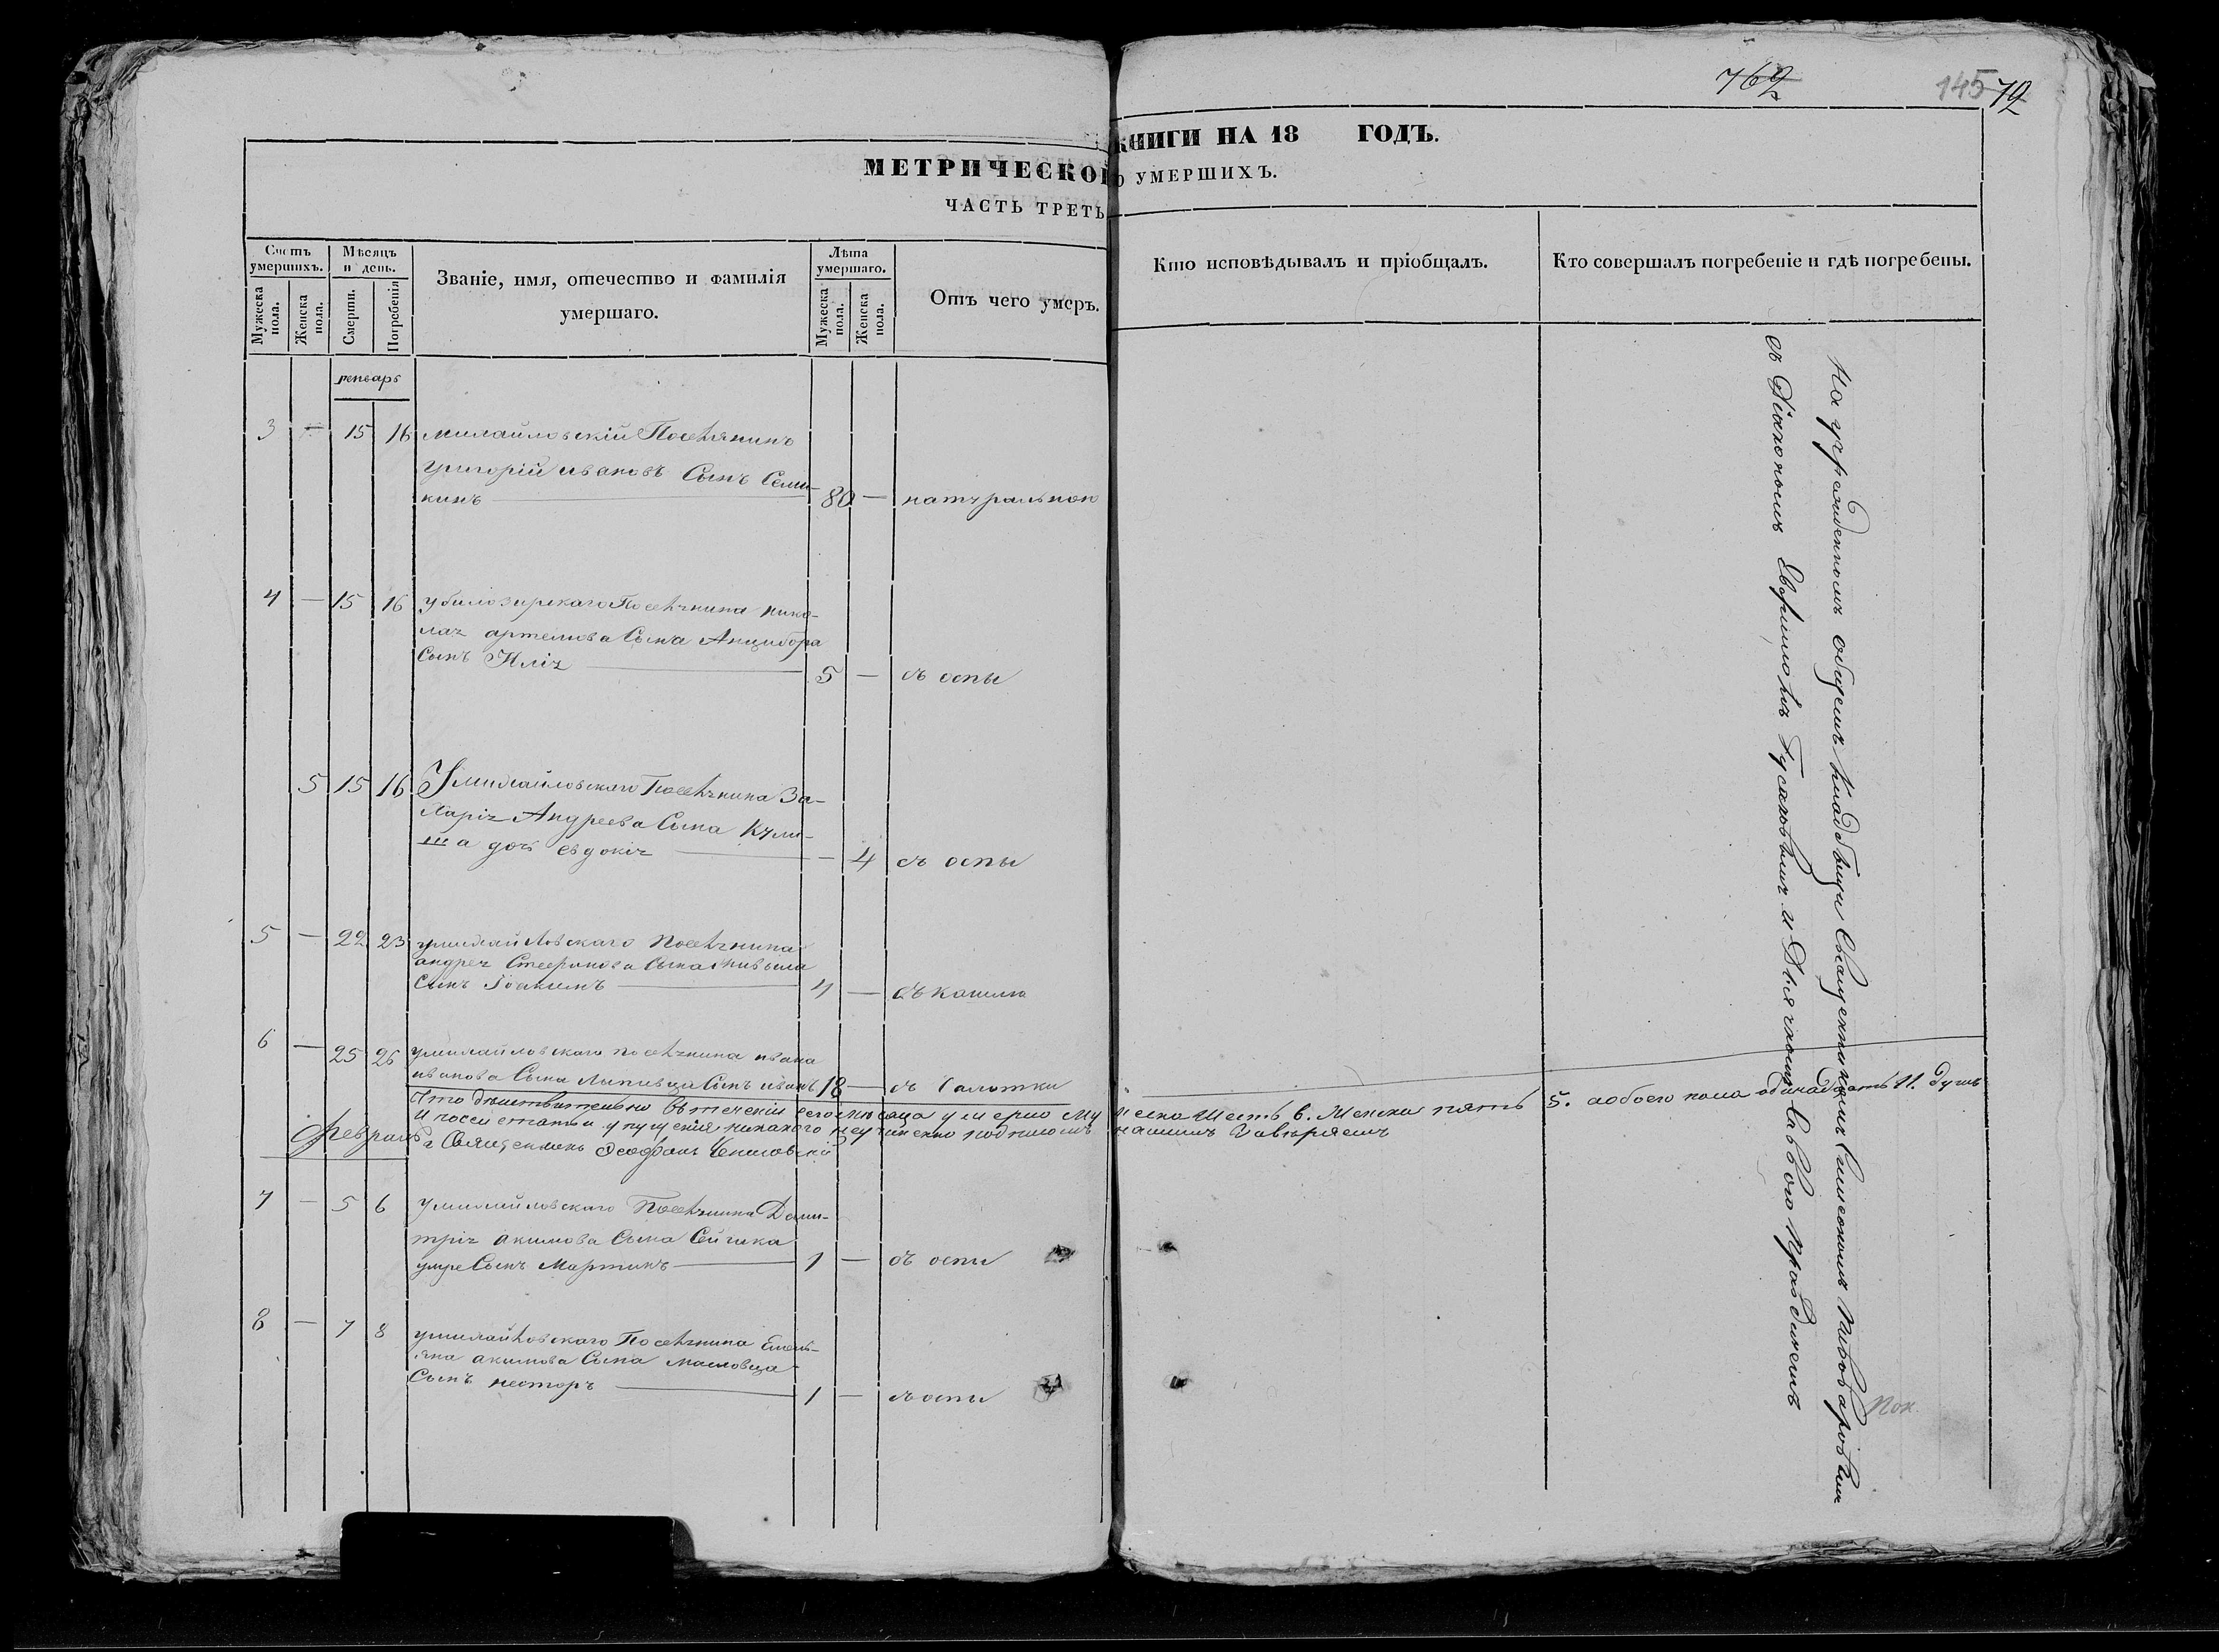 762
145 72
МЕТРИЧЕСКОЙ КНИГИ НА 18 ГОДЪ.
ЧАСТЬ ТРЕТЬ О УМЕРШИХЪ.
Счетъ умершихъ.
Мужеска пола.
Женска пола.
Мѣсяцъ и день.
Смерти.
Погребенія
Званіе, имя, отечество и фамилія
умершаго.
Лѣта умершаго.
Мужеска пола.
Женска пола.
Отъ чего умеръ.
Кто исповѣдывалъ и пріобщалъ.
Кто совершалъ погребеніе и гдѣ погребены.
генварь
3 — 15 16 михайловскій Поселянинъ
григорій ивановъ Сынъ Семи-
кинъ 80 — натуральною
4 — 15 16 у билозирскаго Поселянина нико-
лая артемова Сына Анцибора
Сынъ Илія 5 — съ оспы
5 15 16 У михайловскаго Поселянина За-
харія Андреева Сына Кули-
ша дочь евдокія — 4 съ оспы
5 — 22 23 у михайловскаго Поселянина
андрея Стефанова Сына
Сынъ Іоакимъ 4 — съ кашлю
6 — 25 26 у михайловскаго поселянина ивана
иванова Сына Липивца Сынъ иванъ 18 — съ
Что дѣйствительно въ теченіи сего мѣсяца умерло мужеска шесть 6. Женска пять 5. а обоего пола одинадцать 11. душъ
и по сей статьи упущенія никакого неучиненно подписомъ нашимъ
Священникъ Феофанъ
Февраль
7 — 5 6 у михайловскаго Поселянина Дими-
трія акимова Сына
умре Сынъ Мартинъ 1 — съ оспы
8 — 7 8 у михайловскаго Поселянина Емель-
яна акимова Сына масловца
Сынъ несторъ 1 — съ оспы
На учрежденномъ общемъ кладбищи Священникомъ Симеономъ Пивоваровымъ
съ Діакономъ Евфиміемъ Гусаковымъ и Дьячкомъ Саввою
Пон.